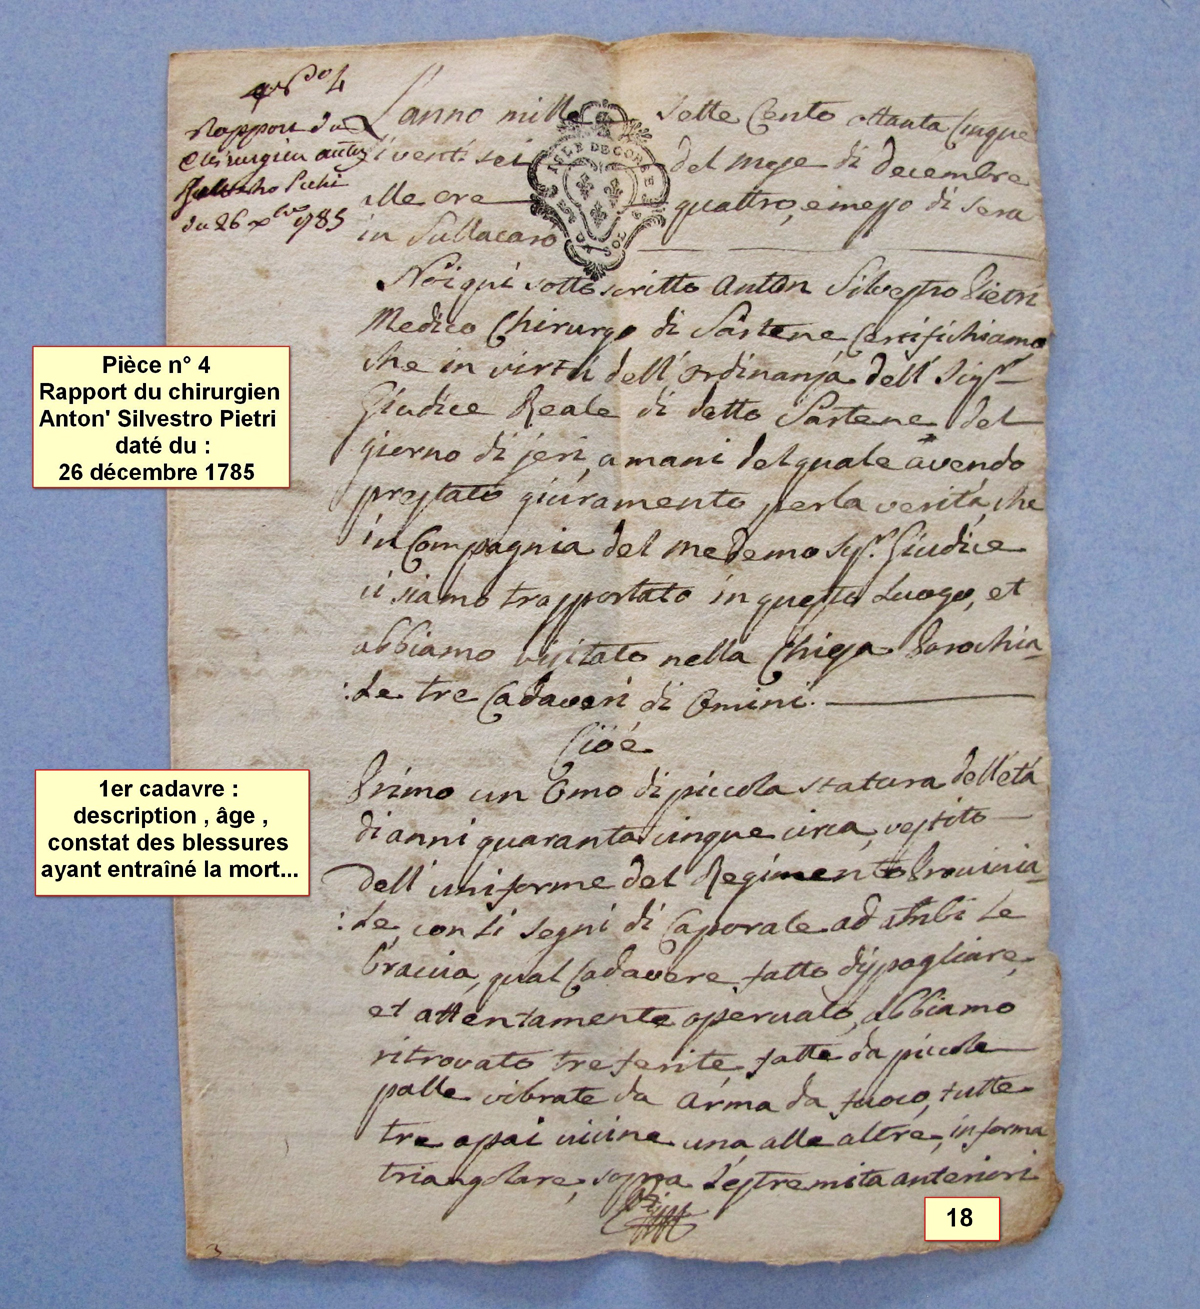 N° 4
Rapport du
Chirurgien anto
Silvestro Pietri
du 26 xbre 1785
L'anno mille sette Cento ottanta Cinque
li venti sei del mese di decembre
alle ore quattro, e mezzo di sera
in Sullacaro
ISLE DE CORSE
UN SOL
Noi qui sotto scritto Anton Silvestro Pietri
Medico Chirurgo di Sartene Certifichiamo
che in virtù dell'ordinanza dell' Sigr
Giudice Reale di detto Sartene del
giorno di jeri, a mani del quale avendo
prestato giuramento per la verità, che
in Compagnia del medemo Sigr Giudice
ci siamo trapportato in questo Luogo, et
abbiamo visitato nella Chiesa Parochia
:le tre Cadaveri di Omini.
Cioè
Primo un Omo di piccola statura dell'età
di anni quaranta cinque circa, vestito
dell'uniforme del Regimento Provincia
:le con li segni di Caporale ad ambi le
braccia, qual Cadavere fatto dispogliare,
et attentamente osservato, abbiamo
ritrovato tre ferite fatte da piccole
palle vibrate da Arma da fuoco, tutte
tre assai vicine una, alle altre, in forma
triangolare, sopra l'estremità anteriori
Pièce n° 4
Rapport du chirurgien
Anton' Silvestro Pietri
daté du :
26 décembre 1785
1er cadavre :
description , âge ,
constat des blessures
ayant entraîné la mort...
18